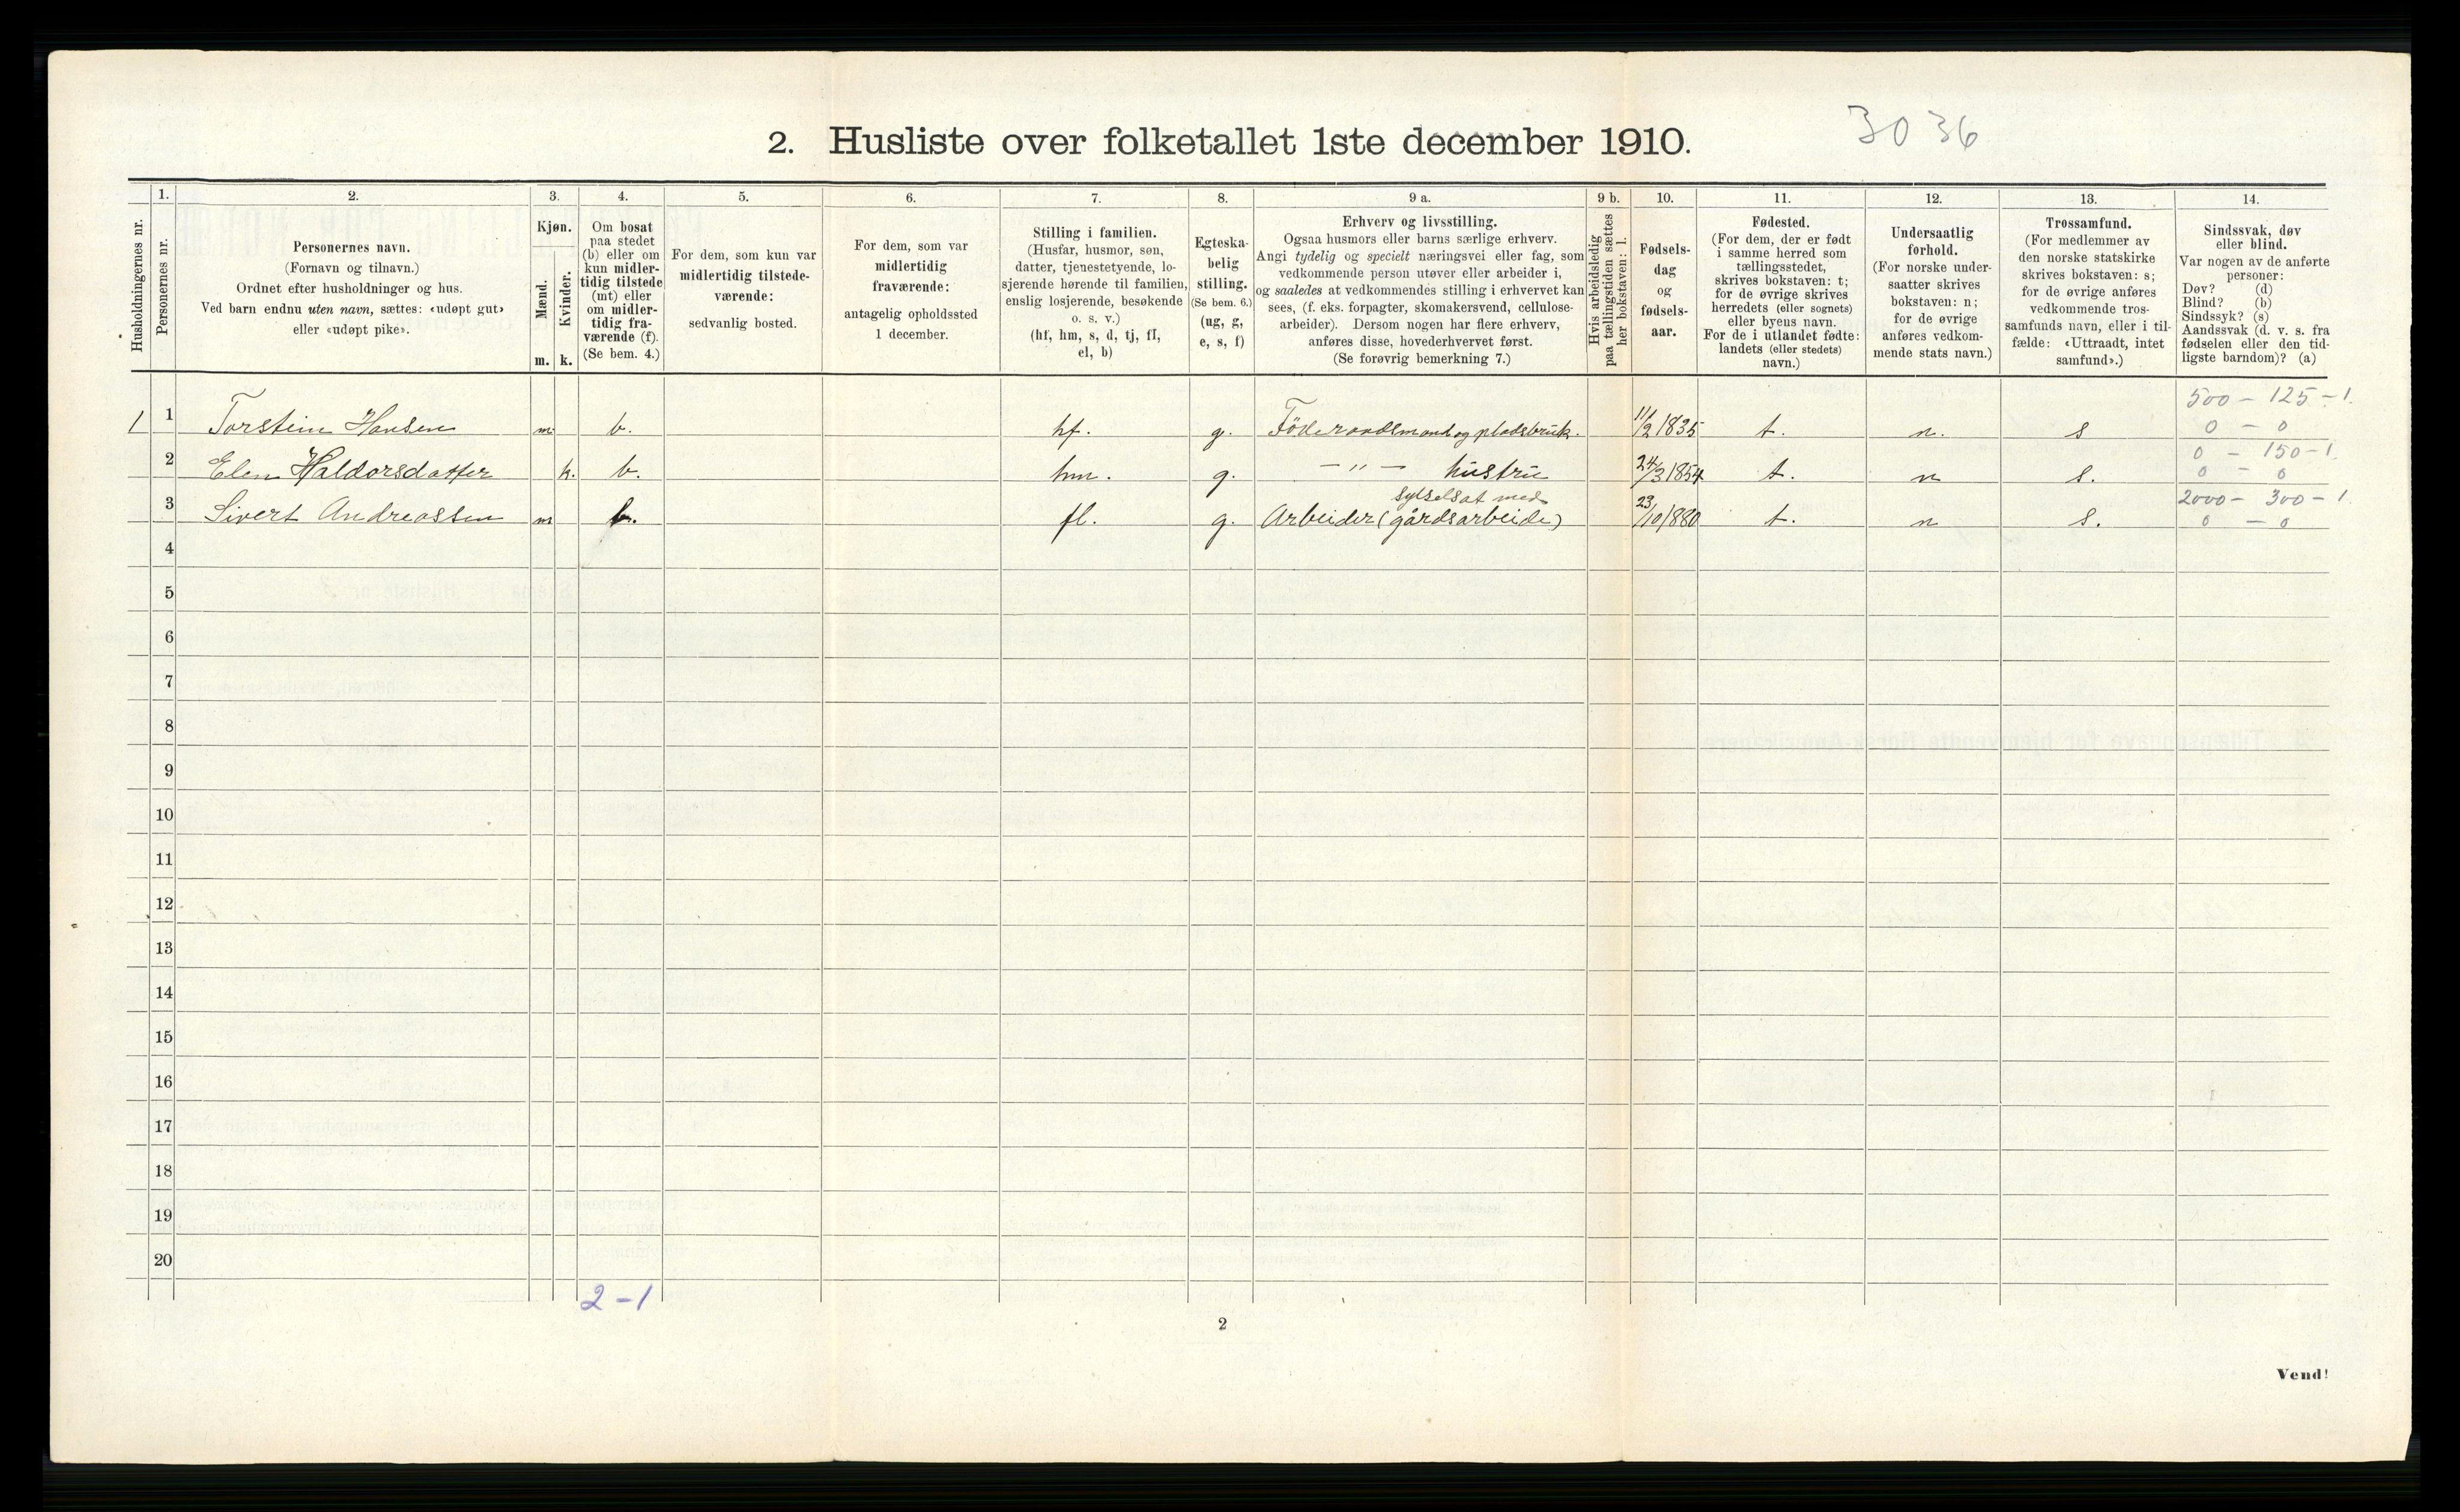 2. Husliste over folketallet 1ste december 1910.
3036
Husholdningernes nr.
1.
Personernes nr.
2.
Personernes navn.
(Fornavn og tilnavn.)
Ordnet efter husholdninger og hus.
Ved barn endnu uten navn, sættes: «udøpt gut»
eller «udøpt pike».
3.
Kjøn.
Mænd.
Kvinder.
m. k.
4.
Om bosat
paa stedet
(b) eller om
kun midler-
tidig tilstede
(mt) eller
om midler-
tidig fra-
værende (f).
(Se bem. 4.)
5.
For dem, som kun var
midlertidig tilstede-
værende:
sedvanlig bosted.
6.
For dem, som var
midlertidig
fraværende:
antagelig opholdssted
1 december.
7.
Stilling i familien.
(Husfar, husmor, søn,
datter, tjenestetyende, lo-
sjerende hørende til familien,
enslig losjerende, besøkende
o. s. v.)
(hf, hm, s, d, tj, fl,
el, b)
8.
Egteska-
belig
stilling.
(Se bem. 6.)
(ug, g,
e, s, f)
9 a.
Erhverv og livsstilling.
Ogsaa husmors eller barns særlige erhverv.
Angi tydelig og specielt næringsvei eller fag, som
vedkommende person utøver eller arbeider i,
og saaledes at vedkommendes stilling i erhvervet kan
sees, (f. eks. forpagter, skomakersvend, cellulose-
arbeider). Dersom nogen har flere erhverv,
anføres disse, hovederhvervet først.
(Se forøvrig bemerkning 7.)
9 b.
Hvis arbeidsledig
paa tællingstiden sættes
her bokstaven: l.
10.
Fødsels-
dag
og
fødsels-
aar.
11.
Fødested.
(For dem, der er født
i samme herred som
tællingsstedet,
skrives bokstaven: t;
for de øvrige skrives
herredets (eller sognets)
eller byens navn.
For de i utlandet fødte:
landets (eller stedets)
navn.)
12.
Undersaatlig
forhold.
(For norske under-
saatter skrives
bokstaven: n;
for de øvrige
anføres vedkom-
mende stats navn.)
13.
Trossamfund.
(For medlemmer av
den norske statskirke
skrives bokstaven: s;
for de øvrige anføres
vedkommende tros-
samfunds navn, eller i til-
fælde: «Uttraadt, intet
samfund».)
14.
Sindssvak, døv
eller blind.
Var nogen av de anførte
personer:
Døv? (d)
Blind? (b)
Sindssyk? (s)
Aandssvak (d. v. s. fra
fødselen eller den tid-
ligste barndom)? (a)
500 - 125 - 1.
1 1 Torstein Hansen m b. hf. g. Föderaadsmand og pladsbruk. 11/2 1835 t. n. s 0 - 0
0 - 150 - 1.
2 Elen Haldorsdatter k. b. hm. g. - " - hustru 24/3 1854 t. n s. 0 - 0
sysselsat med 2000 - 300 - 1
3 Sivert Andreassen m b. fl. g. Arbeider (gårdsarbeide) 23/10 1880 t. n s. 0 - 0
4
5
6
7
8
9
10
11
12
13
14
15
16
17
18
19
20
2 - 1
2
Vend!